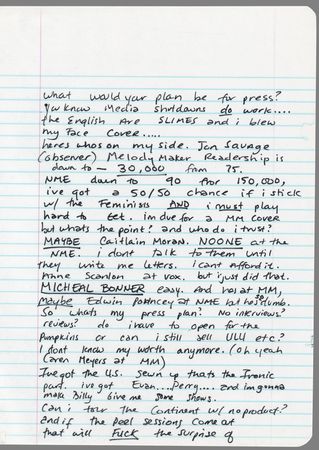 what would your plan be for press?
You know Media shutdowns do work....
the English are SLIMES and i blew
my Face Cover.....
heres whos on my side. Jon Savage
(observer) Melody Maker Readership is
down to - 30,000 from 75.
NME down to 90 from 150,000,
ive got a 50/50 chance if i stick
w/ the Feminists AND i must play
hard to Get. im due for a MM cover
but whats the point? and who do i trust?
MAYBE Caitlain Moran. NOONE at the
NME. i dont talk to them until
they write me letters. I cant afford it.
Anne Scanlon at Vox. but i just did that.
MICHEAL BONNER easy. And hes at MM,
Maybe Edwin Pouncey at NME but hes so dumb.
So whats my press plan? No interviews?
reviews? do i have to open for the
Pumpkins or can i still sell ULU etc?
I dont know my worth anymore. (oh yeah
Caren Meyers at MM)
Ive got the U.S. sewn up thats the Ironic
part. ive got Evan...Perry.... and im gonna
make Billy Give me some shows.
Can i tour the Continent w/ no product?
And if the peel sessions come out
that will FUCK the surprise of